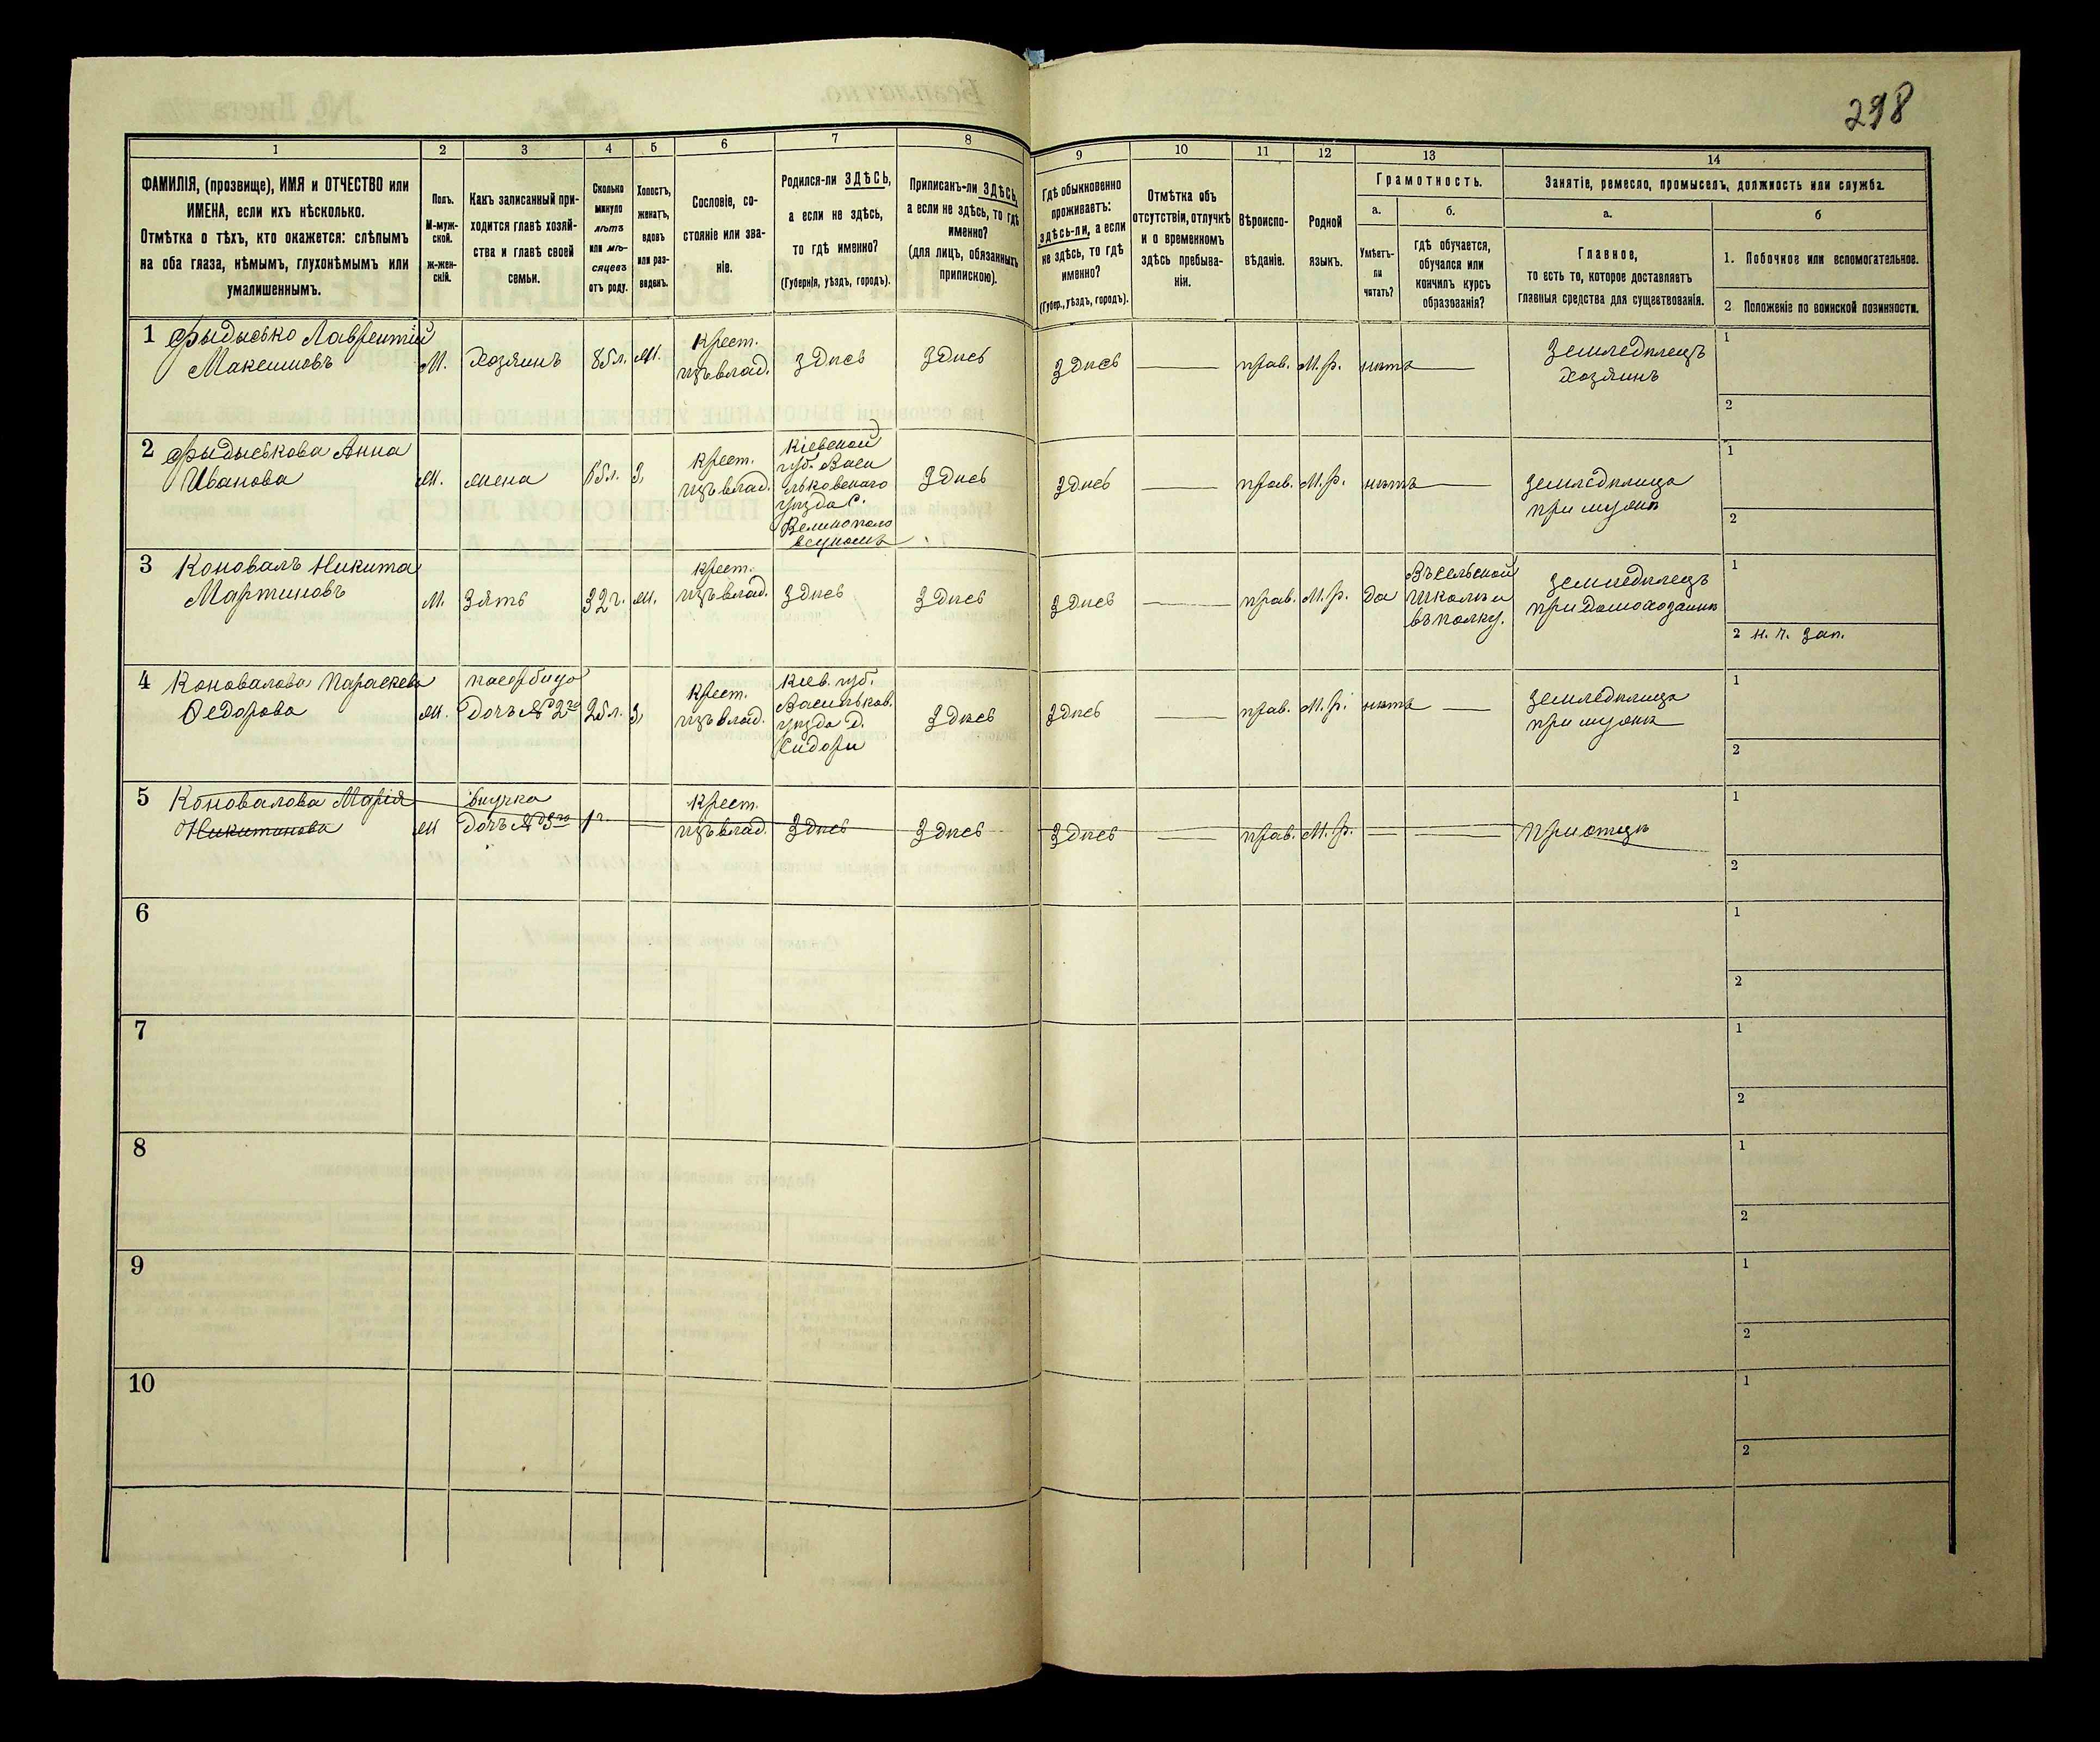 298
1 2 3 4 5 6 7 8 9 10 11 12 13 14
ФАМИЛІЯ, (прозвище), ИМЯ и ОТЧЕСТВО или
ИМЕНА, если ихъ нѣсколько.
Отмѣтка о тѣхъ, кто окажется: слѣпымъ
на оба глаза, нѣмымъ, глухонѣмымъ или
умалишеннымъ.
Полъ.
М-муж-
ской.
ж-жен-
скій.
Какъ записанный при-
ходится главѣ хозяй-
ства и главѣ своей
семьи.
Сколько
минуло
лѣтъ
или мѣ-
сяцевъ
отъ роду.
Холостъ,
женатъ,
вдовъ
или раз-
веденъ.
Сословіе, со-
стояніе или зва-
ніе.
Родился-ли ЗДѢСЬ,
а если не здѣсь,
то гдѣ именно?
(Губернія, уѣздъ, городъ).
Приписанъ-ли ЗДѢСЬ,
а если не здѣсь, то гдѣ
именно?
(для лицъ, обязанныхъ
припискою).
Гдѣ обыкновенно
проживаетъ:
здѣсь-ли, а если
не здѣсь, то гдѣ
именно?
(Губер., уѣздъ, городъ).
Отмѣтка объ
отсутствіи, отлучкѣ
и о временномъ
здѣсь пребыва-
ніи.
Вѣроиспо-
вѣданіе.
Родной
языкъ.
Грамотность.
а.
Умѣетъ-
ли
читать?
б.
гдѣ обучается,
обучался или
кончилъ курсъ
образованія?
Занятіе, ремесло, промыселъ, должность или служба.
а.
Главное,
то есть то, которое доставляетъ
главныя средства для существованія.
б
1. Побочное или вспомогательное.
2 Положеніе по воинской повинности.
1 Фыдысько Лаврентій
Максимовъ
М. Хозяинъ 85л. ж.
Крест.
изъ влад.
Здѣсь Здѣсь Здѣсь прав. М.р. нѣтъ
Земледѣлецъ
Хозяинъ
1
2
2 Фыдыськова Анна
Иванова
ж. жена з.
Крест.
изъ влад.
Кіевской
губ. Васи
льковскаго
уѣзда с.
Великополо
вецкомъ
Здѣсь Здѣсь прав. М.р. нѣтъ
земледѣлица
при мужѣ
1
2
3 Коновалъ Никита
Мартиновъ
М. Зять 32г. ж.
крест.
изъ влад.
Здѣсь Здѣсь Здѣсь прав. М.р. да
Въ сельской
школѣ и
въ полку.
Земледѣлецъ
при домохозяинѣ
1
2 н. ч. зап.
4 Коновалова Параскева
Ѳедорова
ж.
Дочь № 2го 25л. з.
Крест.
изъ влад.
Кіев. губ.
Васильков.
уѣзда д.
Сидори
Здѣсь Здѣсь прав. М.р. нѣтъ
земледѣлица
при мужѣ
1
2
5 Коновалова Марія
Никитонова
ж
внучка
Дочь № 3го 1г.
Крест.
изъ влад.
Здѣсь Здѣсь Здѣсь прав. М.р.
При отцѣ
1
2
6
1
2
7
1
2
8
1
2
9
1
2
10
1
2